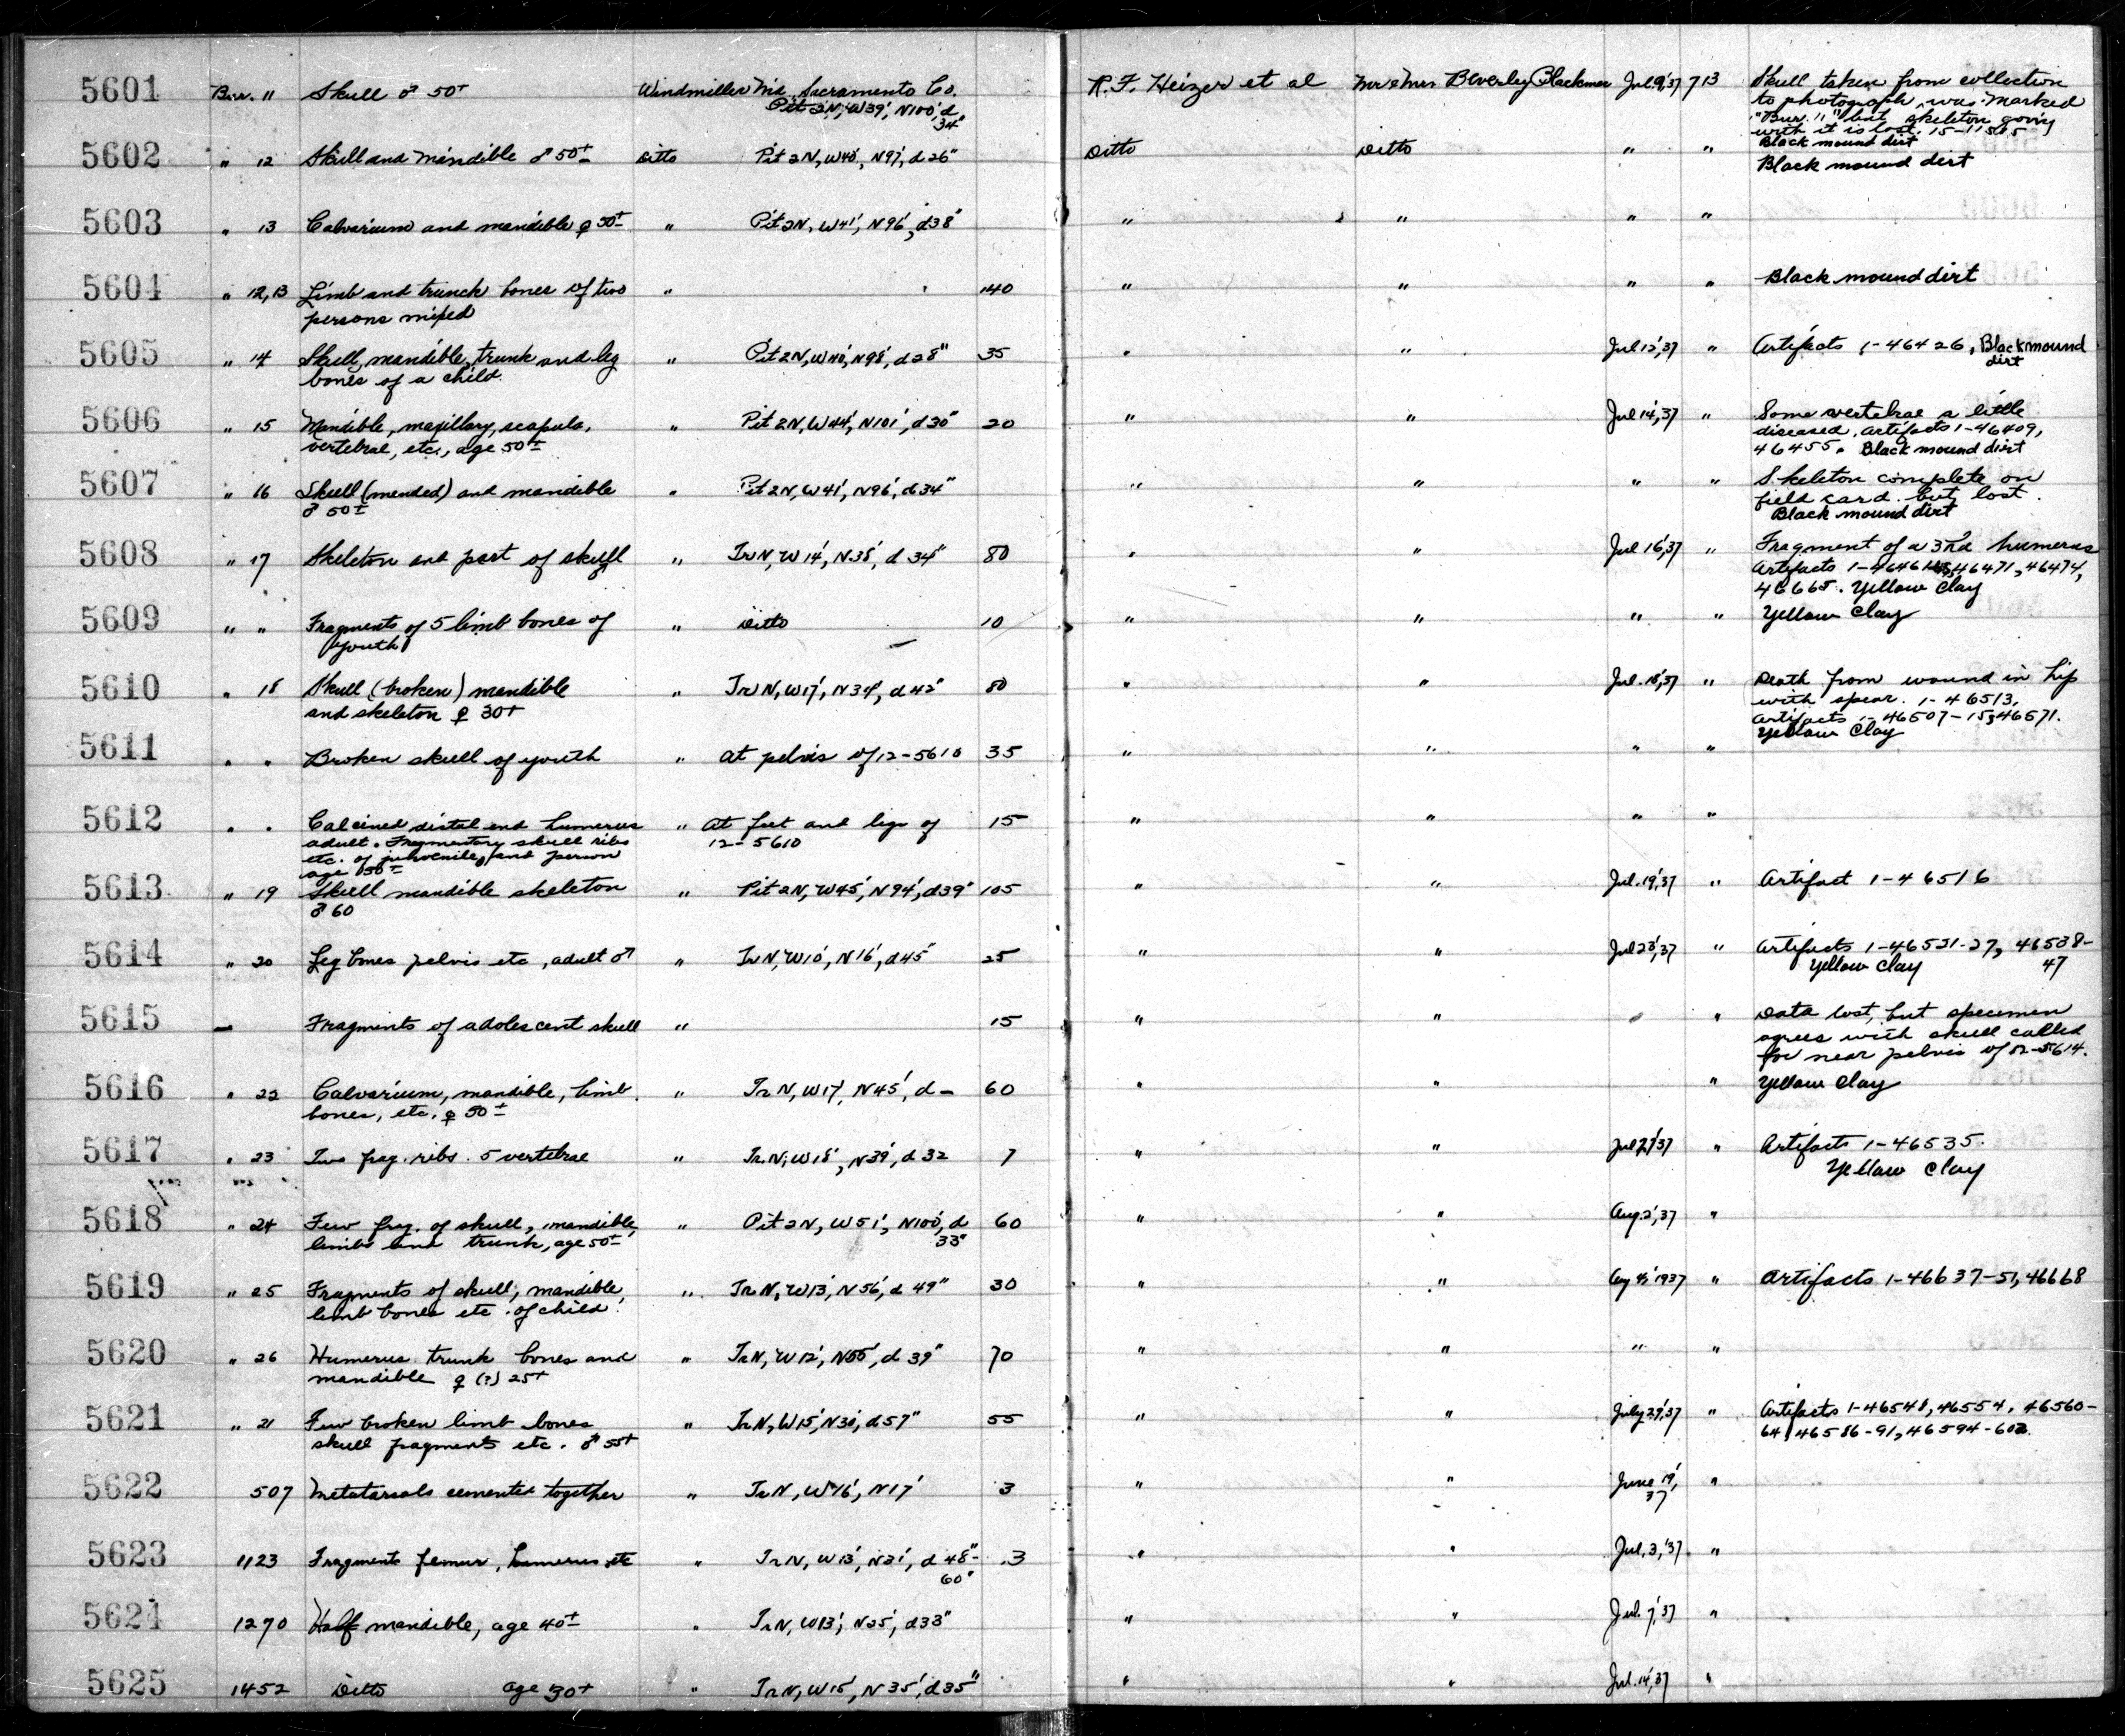 5601 Bur. 11 Skull ♂ 50+ Windmiller Md. Sacramento Co. R.F. Heizer et al Mr & Mrs Beverley Blackmer Jul. 9, 37 713 Skull taken from collection
Pit 2N, W39', N100', d 34" to photograph, was marked
"Bur. 11" but skeleton going
with it is lost.
Black mound dirt
5602 " 12 Skull and mandible ♂ 50± Ditto Pit 2N, W40', N97', d 26" Ditto Ditto " " Black mound dirt
5603 " 13 Calvarium and mandible ♀ 50± " Pit 2N, W41', N96', d38" " " " "
5604 " 12,13 Limb and trunck bones of two " 140 " " " " Black mound dirt
persons mixed
5605 " 14 Skull, mandible, trunk and leg " Pit 2N, W40', N98', d28" 35 " " Jul. 12, 37 " Artifacts 1-46426, Black mound
bones of a child. dirt
5606 " 15 Mandible, maxillary, scapula, " Pit 2N, W44', N101', d30" 20 " " Jul 14, 37 " Some vertebrae a little
vertebrae, etc., age 50± diseased. Artifacts 1-46409,
46455. Black mound dirt
5607 " 16 Skull (mended) and mandible " Pit 2N, W41', N96', d34" " " " " Skeleton complete on
♂ 50± field card but lost.
Black mound dirt
5608 " 17 Skeleton and part of skull " Tr N, W14', N38', d 34" 80 " " Jul 16, 37 " Fragment of a 3rd humerus
Artifacts 46471, 46474,
46665. Yellow Clay
5609 " " Fragments of 5 limb bones of " Ditto 10 " " " " Yellow Clay
youth
5610 " 18 Skull (broken) mandible " Tr N, W17', N34', d42" 80 " " Jul. 18, 37 " Death from wound in hip
and skeleton ♀ 30+ with spear. 1-46513.
Artifacts 1-46507-15, 46571.
Yellow Clay
5611 " " Broken skull of youth " at pelvis of 12-5610 35 " " " "
5612 " " Calcined distal end humerus " At feet and legs of 15 " " " "
adult. Fragmentary skull ribs 12-5610
etc. of juhvenile, and person
age 50±
5613 " 19 Skull mandible skeleton " Pit 2N, W45', N94', d39" 105 " " Jul. 19, 37 " Artifact 1-46516
♂ 60
5614 " 20 Leg bones pelvis etc, adult ♂ " Tr N, W10', N16', d45" 25 " " Jul 23, 37 " Artifacts 1-46521-27, 46538-
Yellow Clay 47
5615 — Fragments of adolescent skull " 15 " " " " Data lost, but specimen
agrees with skull called
for near pelvis of 12-5614.
5616 " 22 Calvarium, mandible, limb " Tr N, W17', N45', d— 60 " " " Yellow Clay
bones, etc, ♀ 50±
5617 " 23 Two frag. ribs. 5 vertebrae " Tr. N, W18', N39', d 32 7 " " Jul 27, 37 " Artifacts 1-46535.
Yellow Clay
5618 " 24 Few frg. of skull, mandible, " Pit 2N, W51', N100', d 60 " " Aug. 2, 37 "
limbs and trunk, age 50± 33"
5619 " 25 Fragments of skull, mandible, " Tr N, W13', N56', d 49" 30 " " Aug 1937 " Artifacts 1-46637-51, 46668
limb bones etc. of child.
5620 " 26 Humerus trunk bones and " Tr N, W12', N55', d 39" 70 " " " "
mandible ♀ (?) 25+
5621 " 21 Few broken limb bones " Tr N, W15', N30', d57" 55 " " July 29, 37 " Artifacts 1-46548, 46554, 46560-
skull fragments etc. ♂ 55+ 64, 46586-91, 46594-602.
5622 507 Metatarsals cemented together " Tr N, W16', N17' 3 " " June 19, "
37
5623 1123 Fragments femur, humerus etc " Tr N, W13', N31', d 48"- 3 " " Jul. 3, '37 "
60"
5624 1270 Half mandible, age 40± " Tr N, W13', N25', d33" " " Jul. 7, 37 "
5625 1452 Ditto age 30+ " Tr N, W15', N35', d35" " " Jul. 14, 37 "